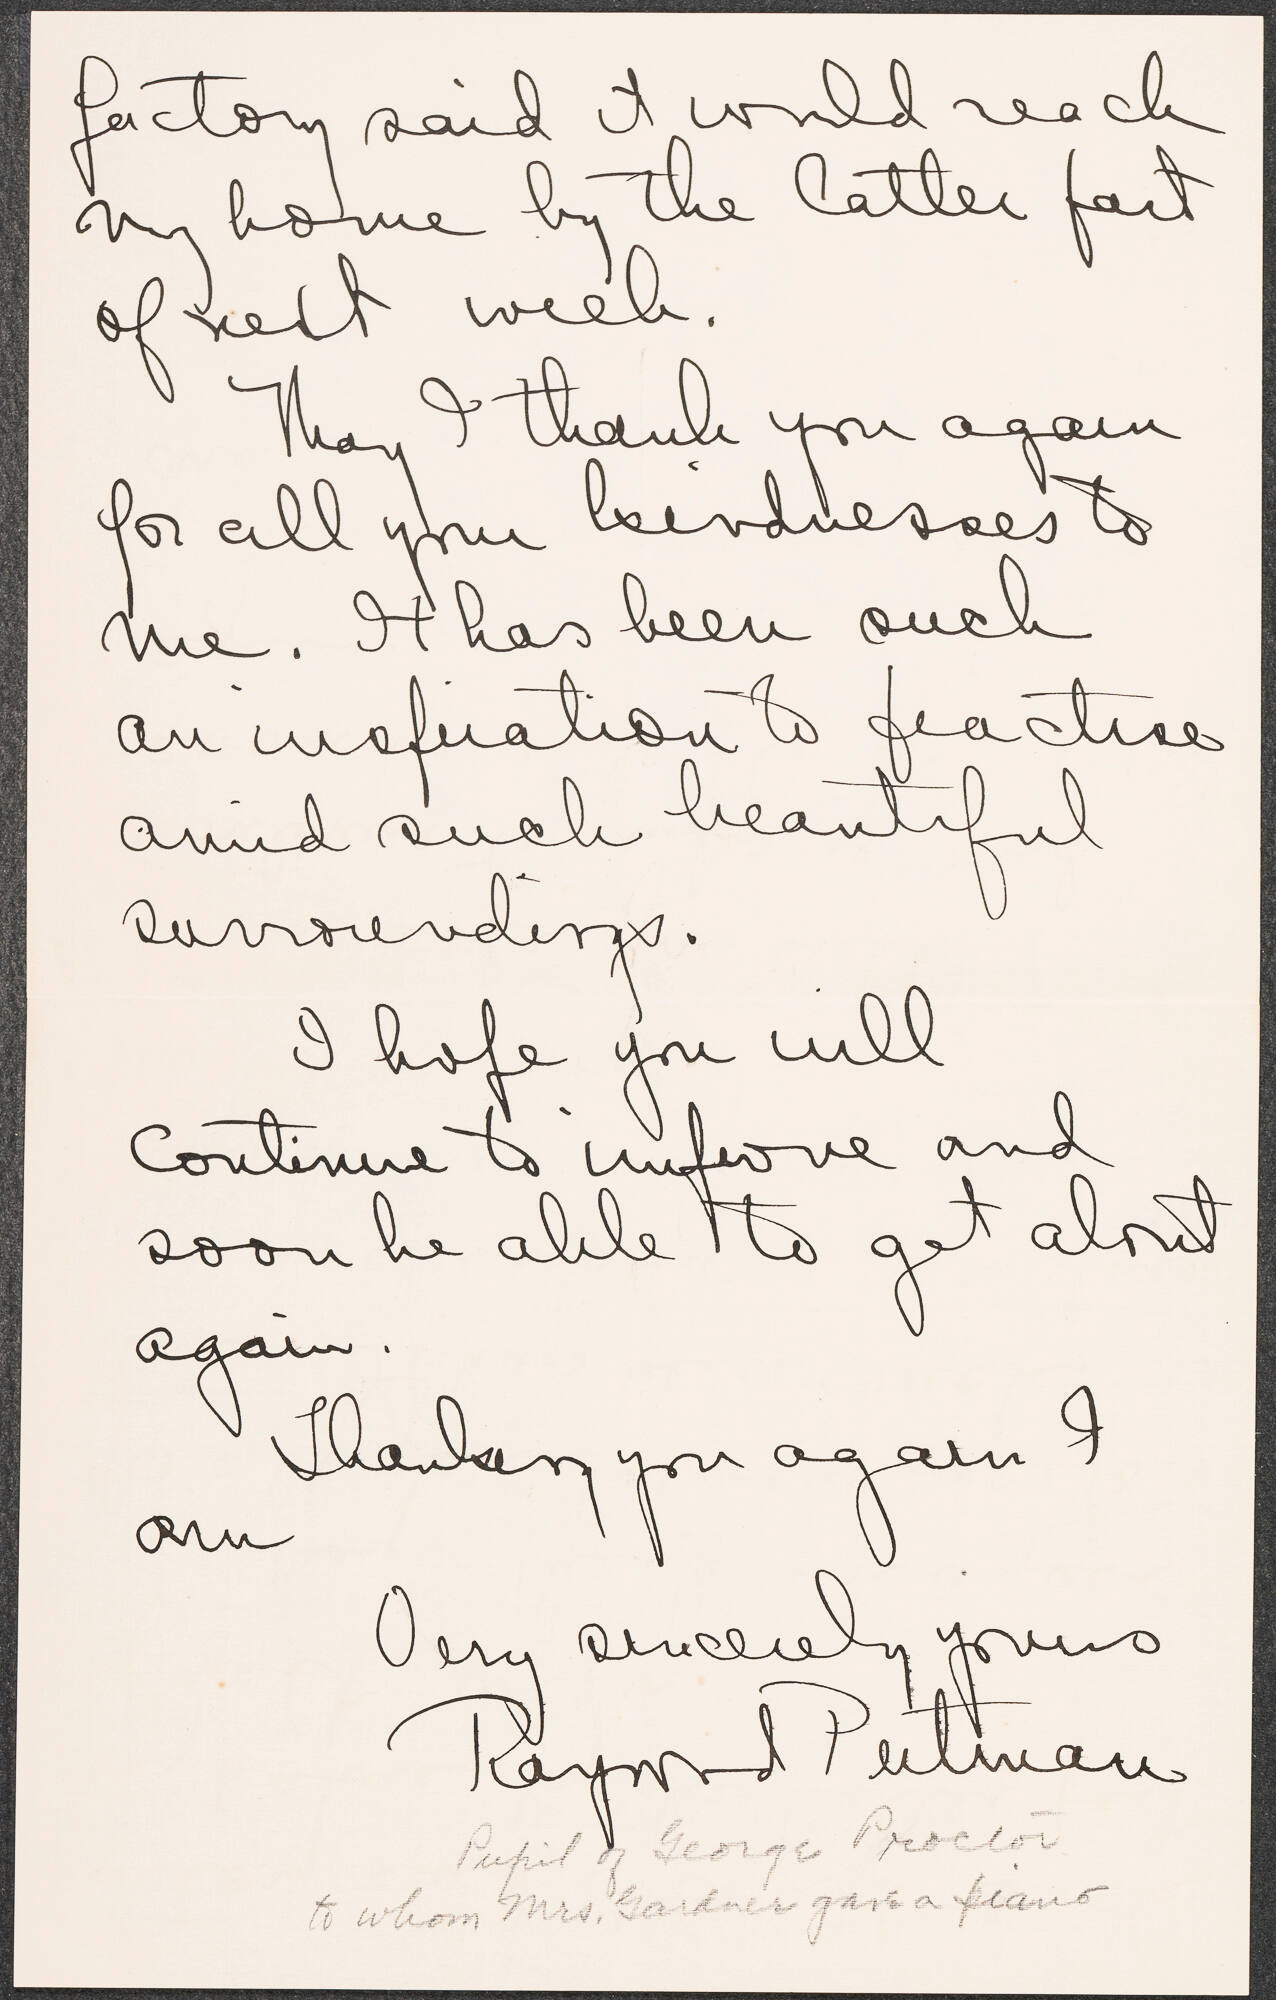 factory said it would reach
my home by the latter part
of next week.
May I thank you again
for all your kindnesses to
me. It has been such
an inspiration to practise
amid such beautiful
surroundings.
I hope you will
continue to improve and
soon be able to get about
again.
Thanking you again I
am
Very sincerely yours
Raymond Putman
Pupil of George Proctor
to whom Mrs. Gardner gave a piano